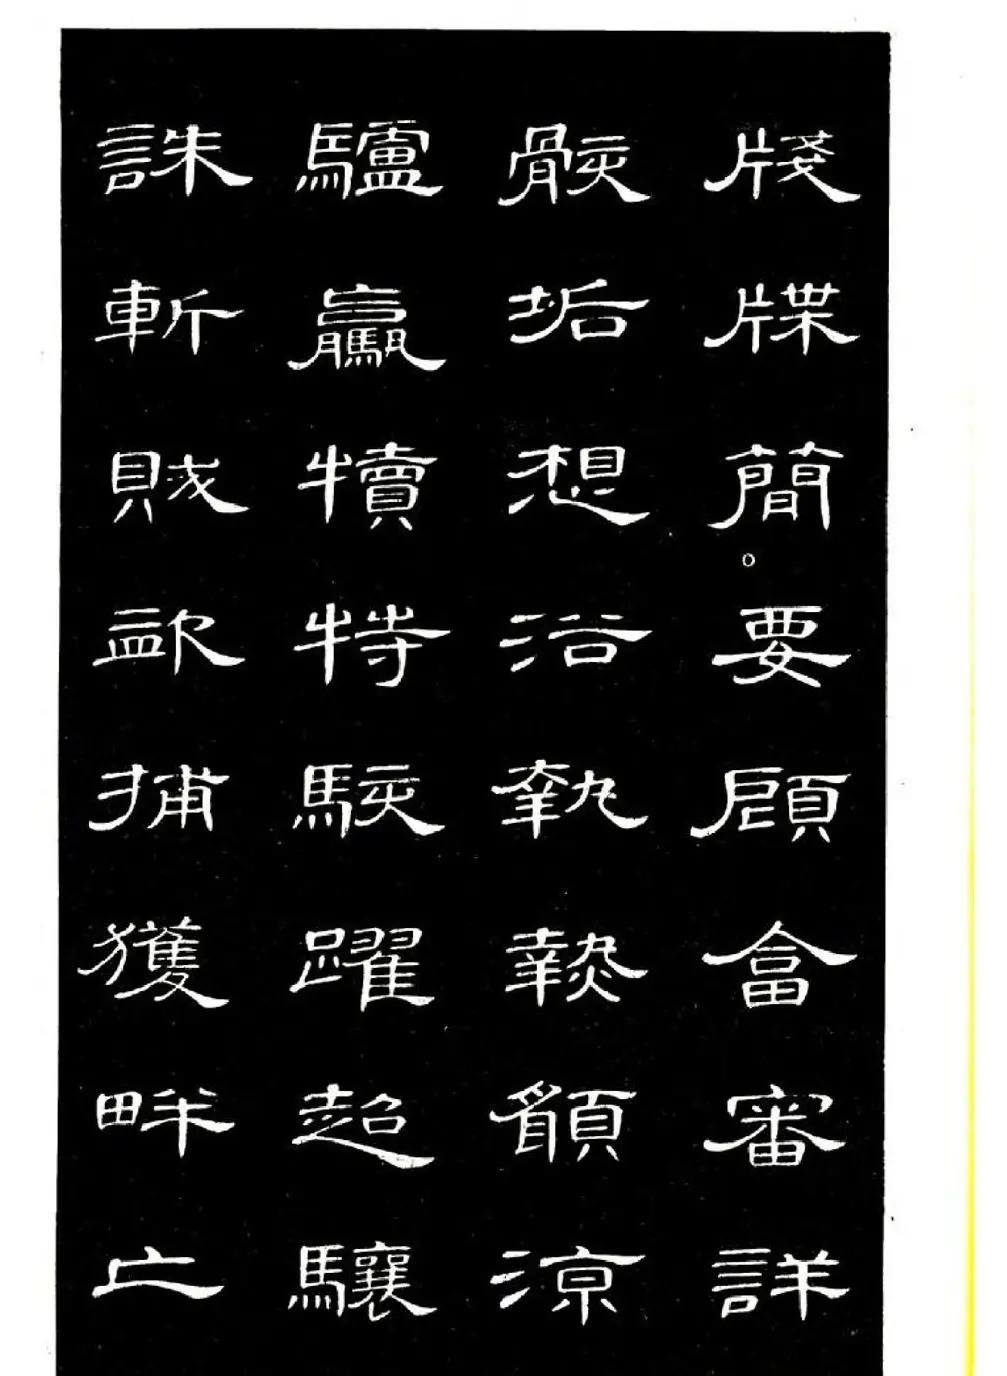 牋牒簡。要顧畣審詳
骸垢想浴執熱願涼
驢驘犢特駭躍超驤
誅斬賊𥁋捕獲畔亡